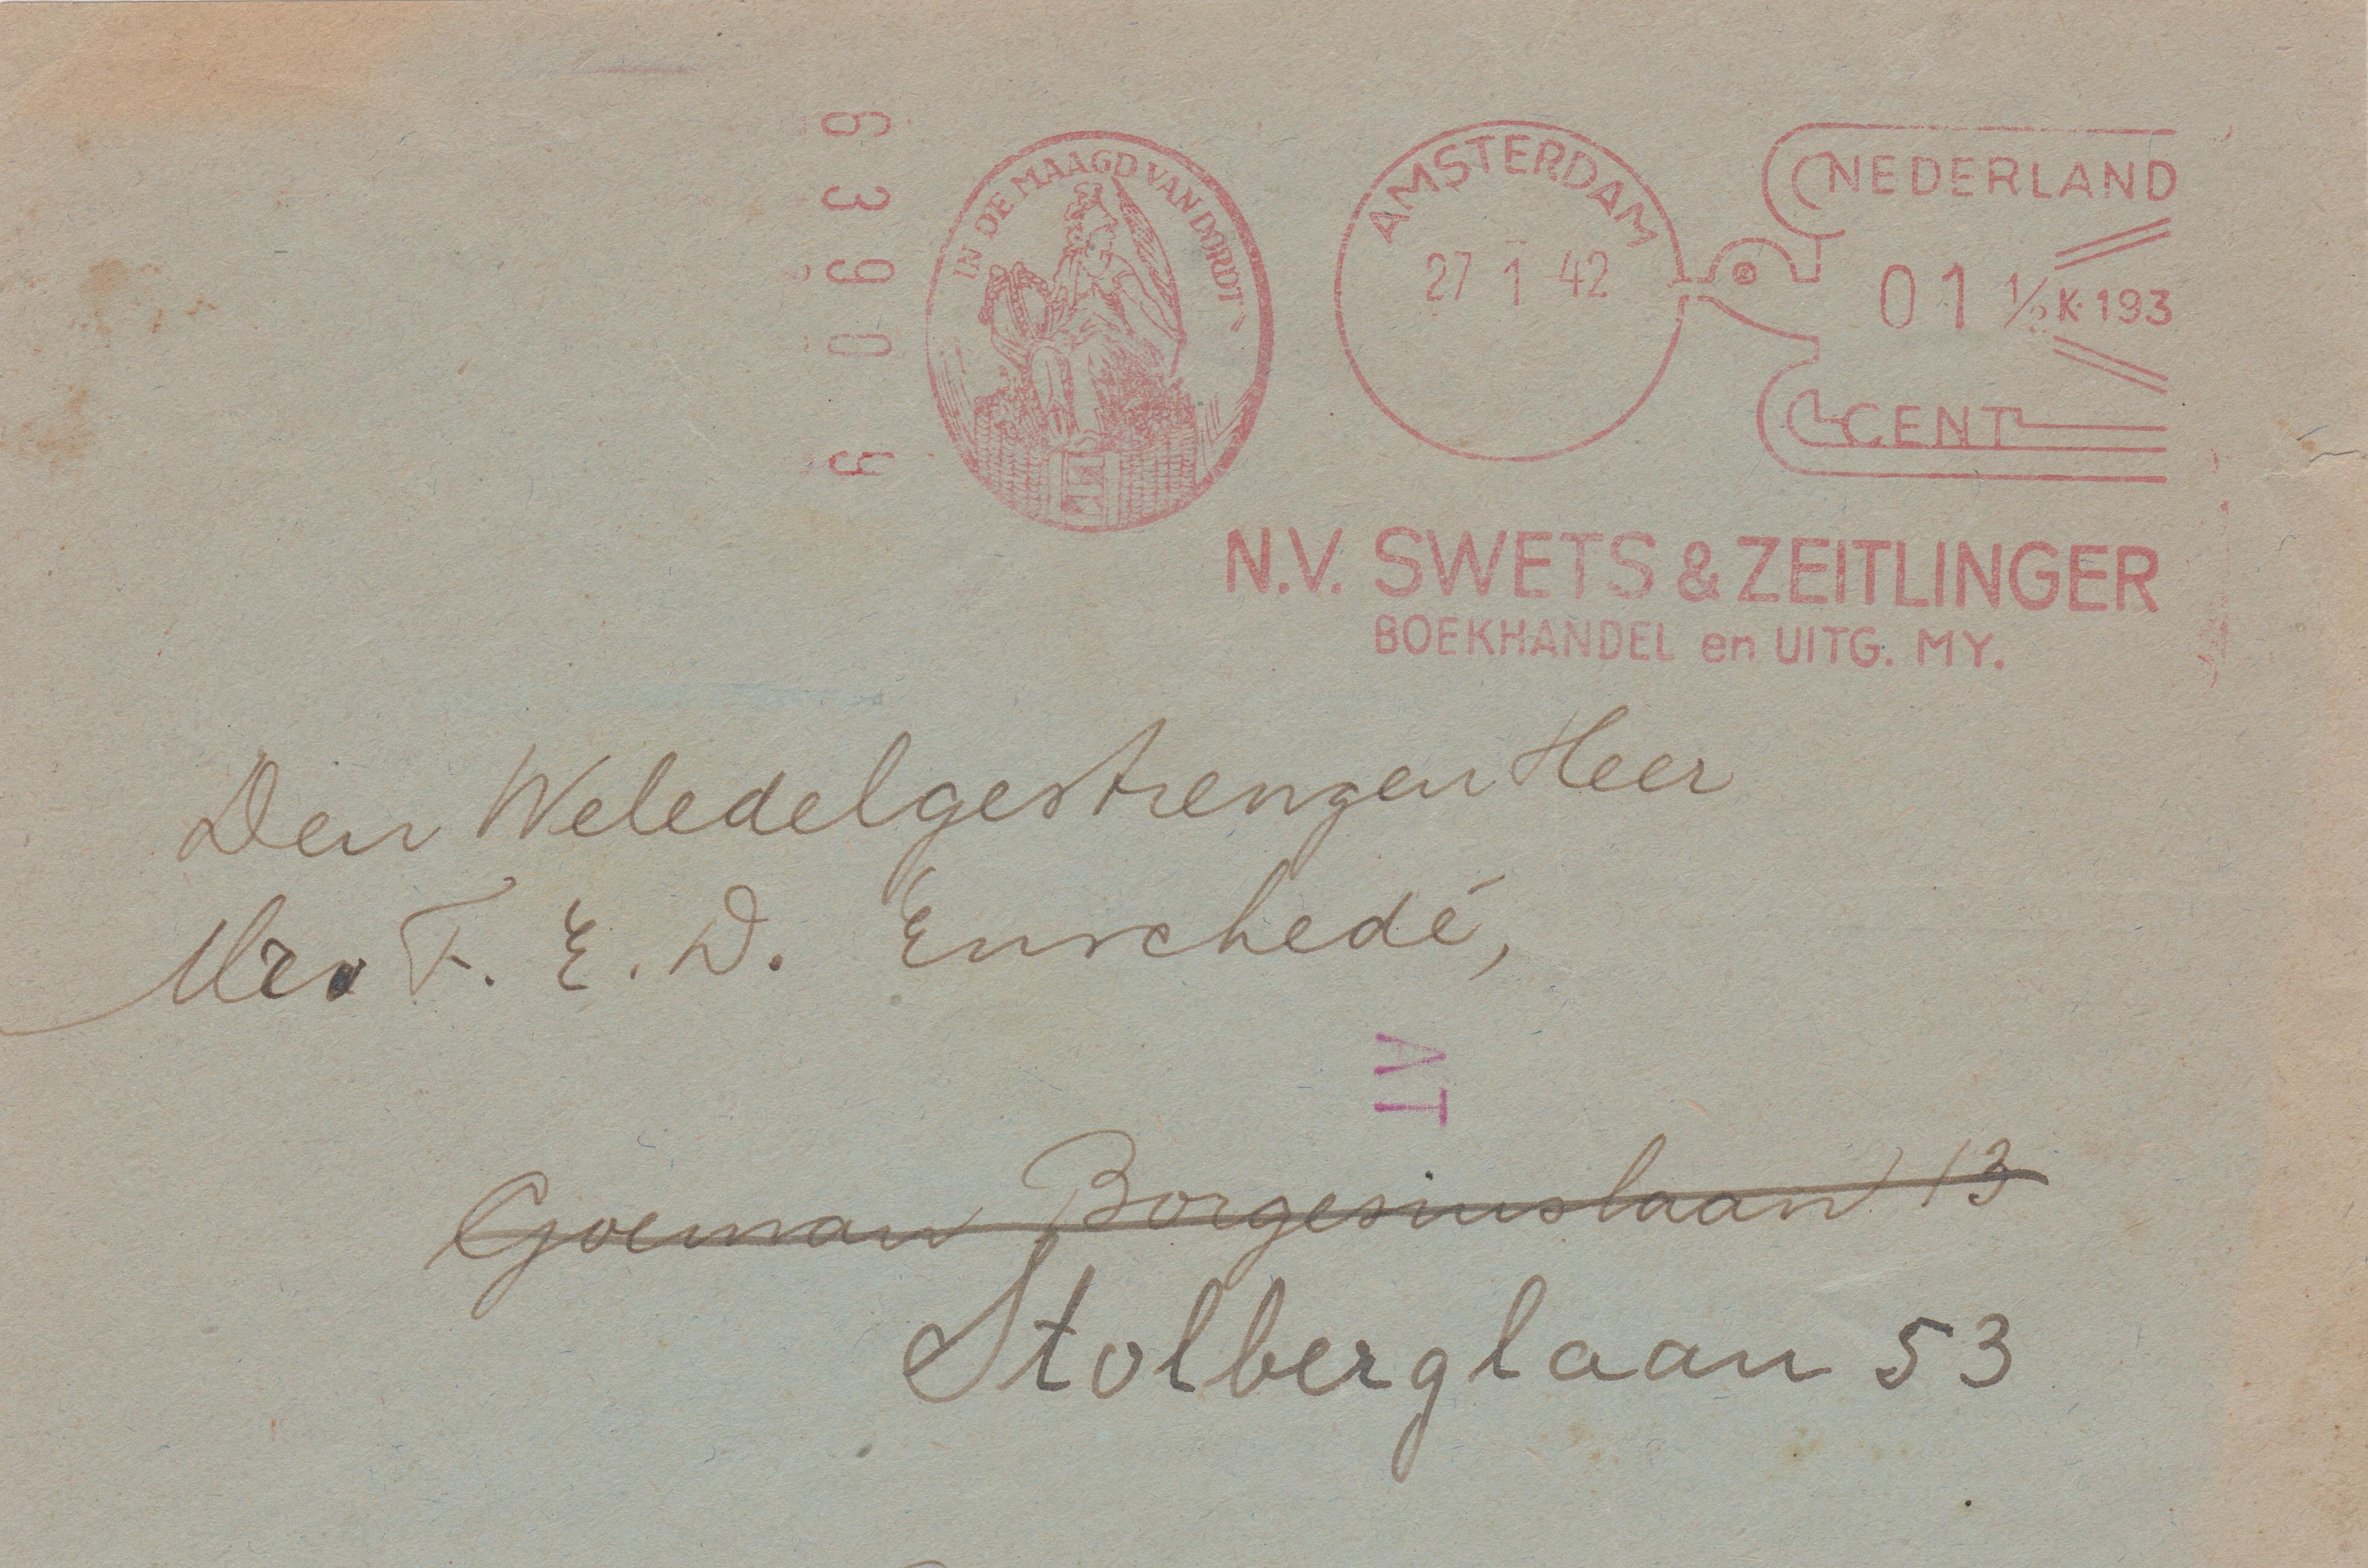 6 3 9 0 4
IN DE MAAGD VAN DORDT
AMSTERDAM
27 1 42
NEDERLAND
01 1/2 K·193
CENT
N.V. SWETS & ZEITLINGER
BOEKHANDEL en UITG. MY.
Den Weledelgestrengen Heer
Mr. F. E. D. Enschedé,
AT
Goeman Borgesiuslaan 13
Stolberglaan 53